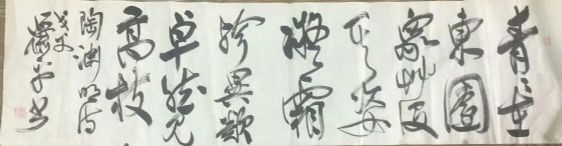 青松在
東園
眾草沒
其姿
凝霜
殄異類
卓然見
高枝
陶渊明诗
书